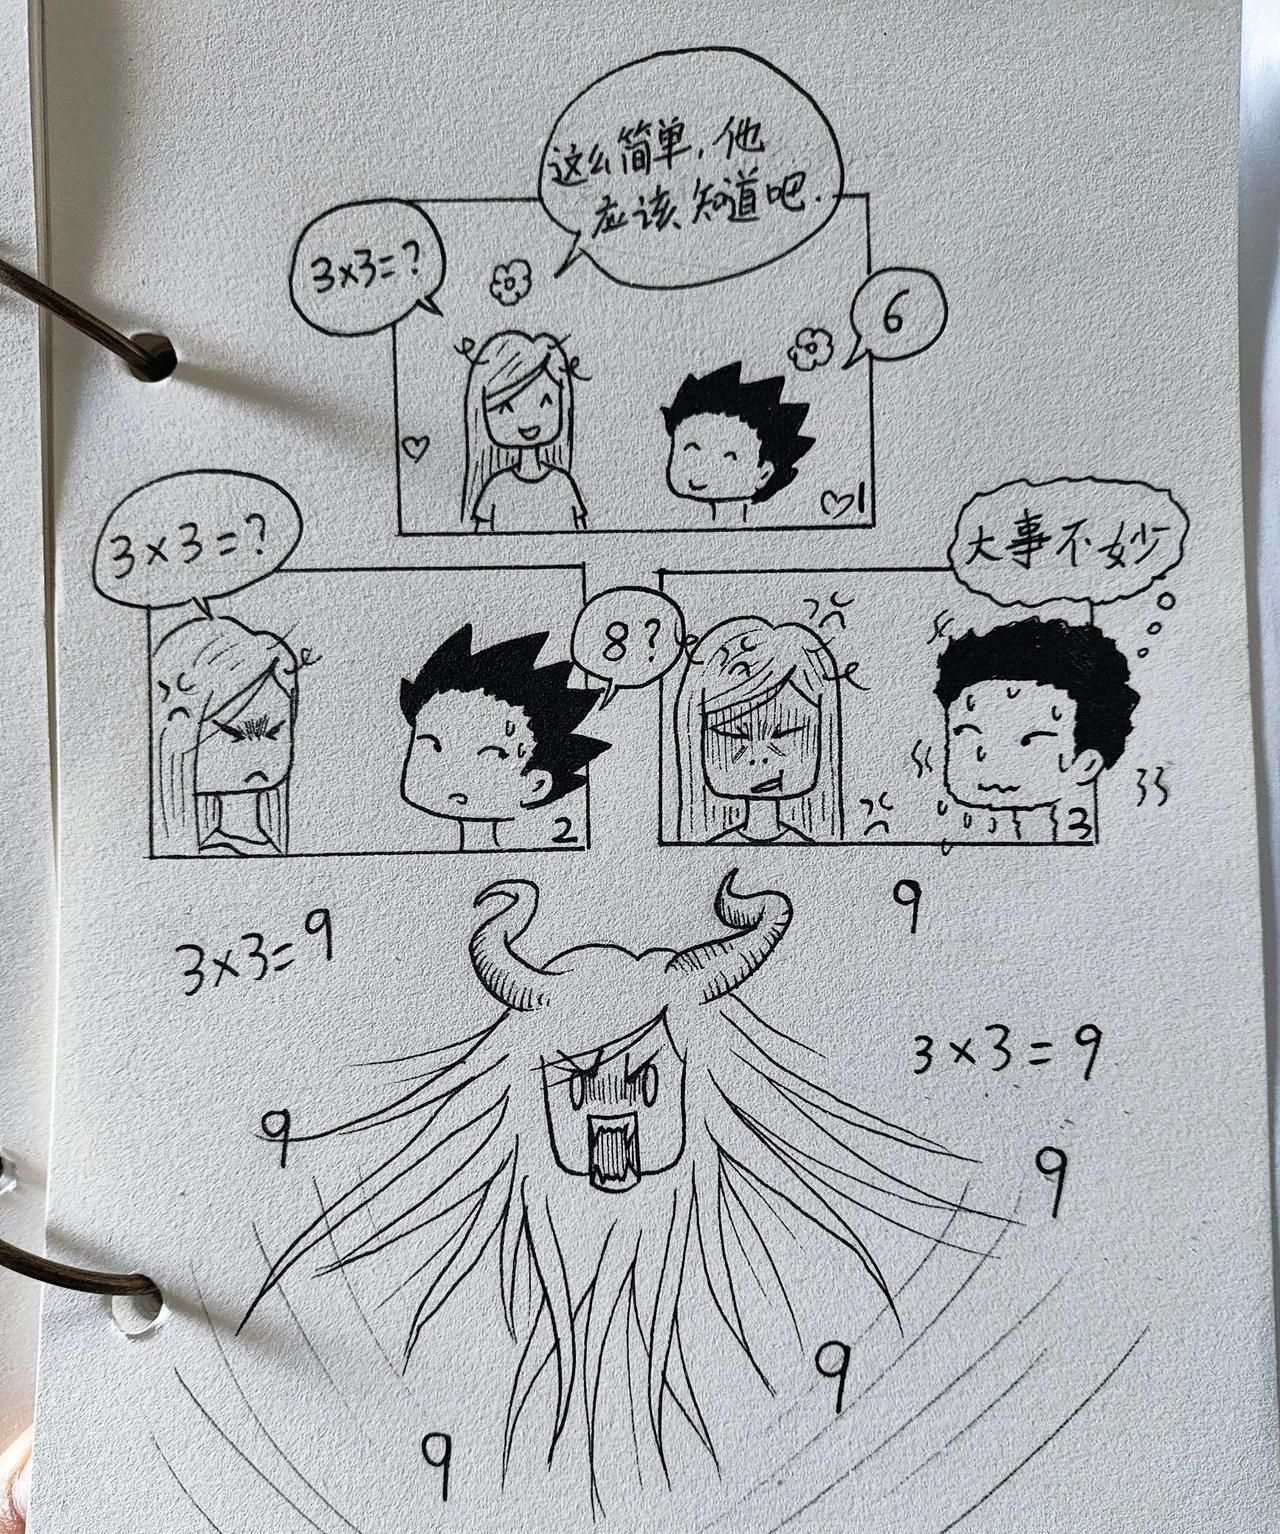 3×3=?
这么简单,他
应该知道吧.
6
1
3×3=?
8?
2
大事不妙
3
3×3=9
9
3×3=9
9
9
9
9